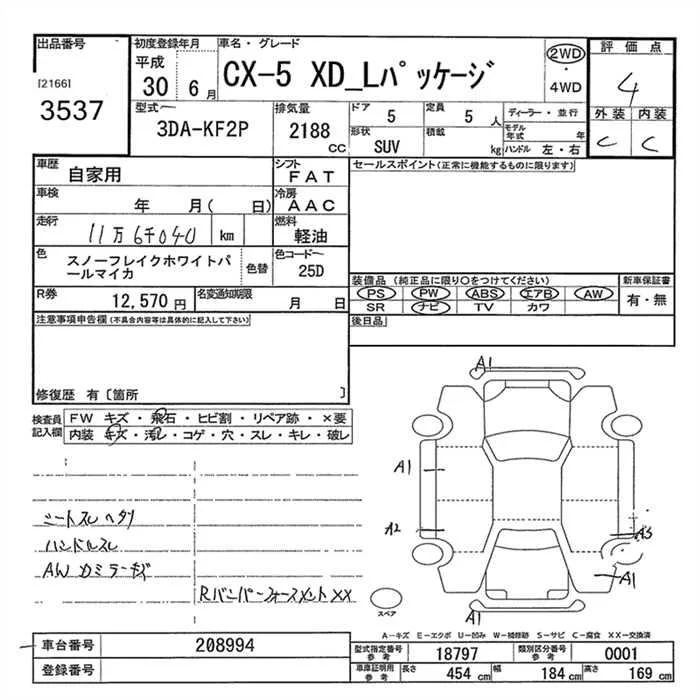 出品番号 初度登録年月 車名・グレード 2WD 評価点
[2166] 平成 CX-5 XD_Lパッケージ ・ 4
3537 30 6月 4WD 外装 内装
型式 排気量 ドア 定員 ディーラー・並行 C C
3DA-KF2P 2188 CC 5 5人 モデル年式 年
形状 積載
SUV kg ハンドル 左・右
車歴 自家用 シフト FAT セールスポイント(正常に機能するものに限ります)
車検 年 月( 日) 冷房 AAC
走行 11万6千040 km 燃料 軽油
色 スノーフレイクホワイトパ 色替 色コード
ールマイカ 25D
装備品 (純正品に限り○をつけてください) 新車保証書
R券 12,570円 名変通知期限 月 日 PS PW ABS エアB AW 有・無
SR ナビ TV カワ
注意事項申告欄(不具合内容等は具体的に記入して下さい) 後日品
修復歴 有〔箇所 〕
検査員 FW キズ・飛石・ヒビ割・リペア跡・×要
記入欄 内装 キズ・汚レ・コゲ・穴・スレ・キレ・破レ
A1
A1
A2 A3
A1
A1
シートスレ ヘタリ
ハンドルスレ
AW カミラーキズ
RバンパーフォースメントXX
スペア
A-キズ E-エクボ U-凹み W-補修跡 S-サビ C-腐食 XX-交換済
車台番号 208994 型式指定番号 参考 18797 類別区分番号 参考 0001
登録番号 車庫証明用 参考 長さ 454 cm 幅 184 cm 高さ 169 cm